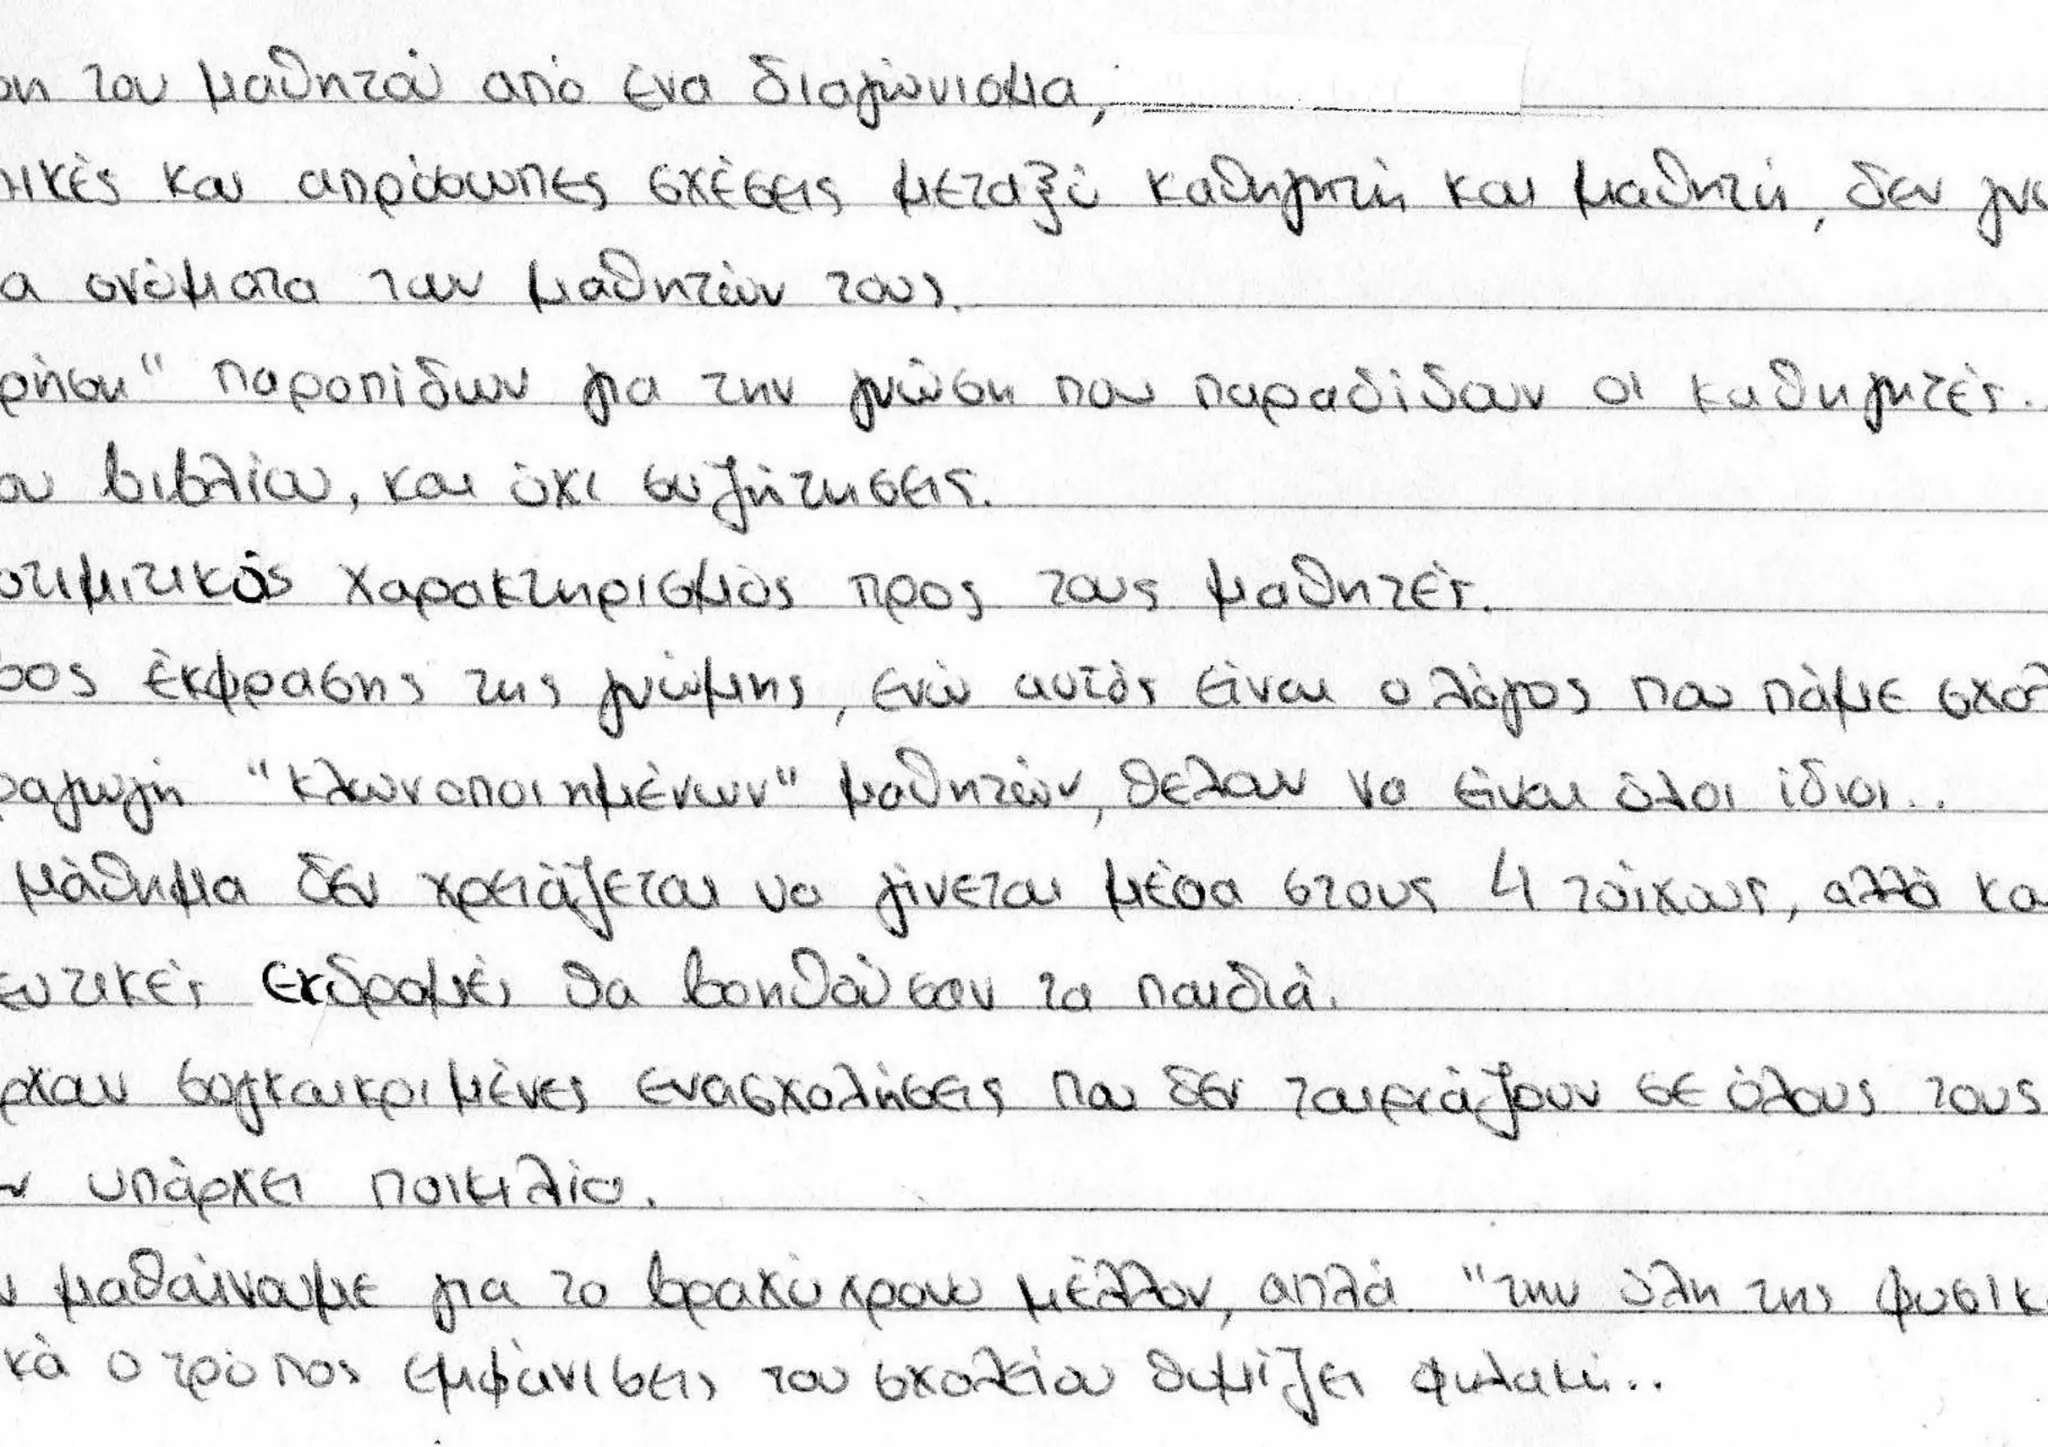 ση του μαθητού από ένα διαγώνισμα,
πικές και απρόσωπες σχέσεις μεταξύ καθηγητή και μαθητή, δεν γνω
α ονόματα των μαθητών τους.
ρήση" παροπίδων για την γνώση που παραδίδουν οι καθηγητές..
ου βιβλίου, και όχι συζήτησεις.
οτιμιτικός χαρακτηρισμός προς τους μαθητές.
ρος έκφρασης της γνώμης, ενώ αυτός είναι ο λόγος που πάμε σχολ
ραγωγή "κλωνοποιημένων" μαθητών, θέλουν να είναι όλοι ίδιοι..
μάθημα δεν χρειάζεται να γίνεται μέσα στους 4 τοίχους, αλλά κα
ευτικές εκδρομές θα βοηθούσαν τα παιδιά.
ρχουν συγκαικριμένες ενασχολήσεις που δεν ταιριάζουν σε όλους τους
ν υπάρχει ποικιλία.
ν μαθαίνουμε για το βραχύχρονο μέλλον, απλά "την ύλη της φυσικ
κά ο τρόπος εμφάνισεις του σχολείου θυμίζει φυλακή..